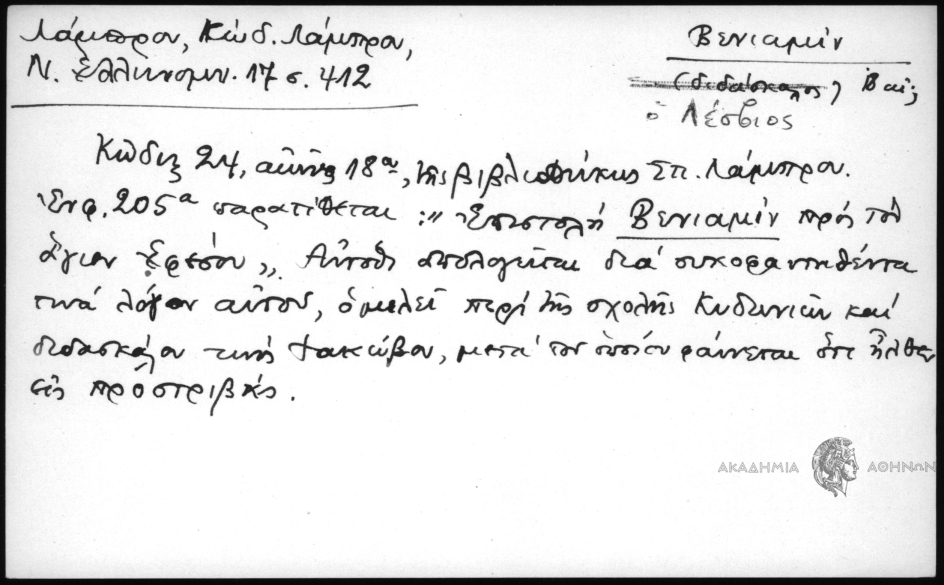 Λάμπρου, Κώδ. Λάμπρου,
Ν. Ἑλληνομν. 17 σ. 412
Βενιαμὶν
(διδάσκαλος)
ὁ Λέσβιος
Κῶδιξ 24, αἰῶνος 18ου, τῆς βιβλιοθήκης Σπ. Λάμπρου.
Ἐν φ. 205α παρατίθεται: "Ἐπιστολὴ Βενιαμὶν πρὸς τὸν
ἅγιον Ἐρεσοῦ". Αὐτόθι ἀπολογεῖται διὰ συκοφαντηθέντα
τινὰ λόγον αὐτοῦ, ὁμιλεῖ περὶ τῆς σχολῆς Κυδωνιῶν καὶ
διδασκάλου τινὸς Ἰακώβου, μετὰ τοῦ ὁποίου φαίνεται ὅτι ἦλθεν
εἰς προστριβάς.
ΑΚΑΔΗΜΙΑ ΑΘΗΝΩΝ